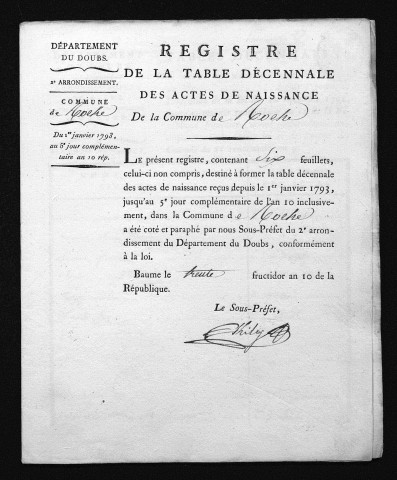 DÉPARTEMENT
DU DOUBS.
2e ARRONDISSEMENT.
COMMUNE
de Roche
Du 1er janvier 1793,
au 5e jour complémen-
taire an 10 rép.
REGISTRE
DE LA TABLE DÉCENNALE
DES ACTES DE NAISSANCE
De la Commune de Roche
LE présent registre, contenant Six feuillets,
celui-ci non compris, destiné à former la table décennale
des actes de naissance reçus depuis le 1er janvier 1793,
jusqu'au 5e jour complémentaire de l'an 10 inclusive-
ment, dans la Commune de Roche
a été coté et paraphé par nous Sous-Préfet du 2e arron-
dissement du Département du Doubs, conformément
à la loi.
Baume le trente fructidor an 10 de la
République.
Le Sous-Préfet,